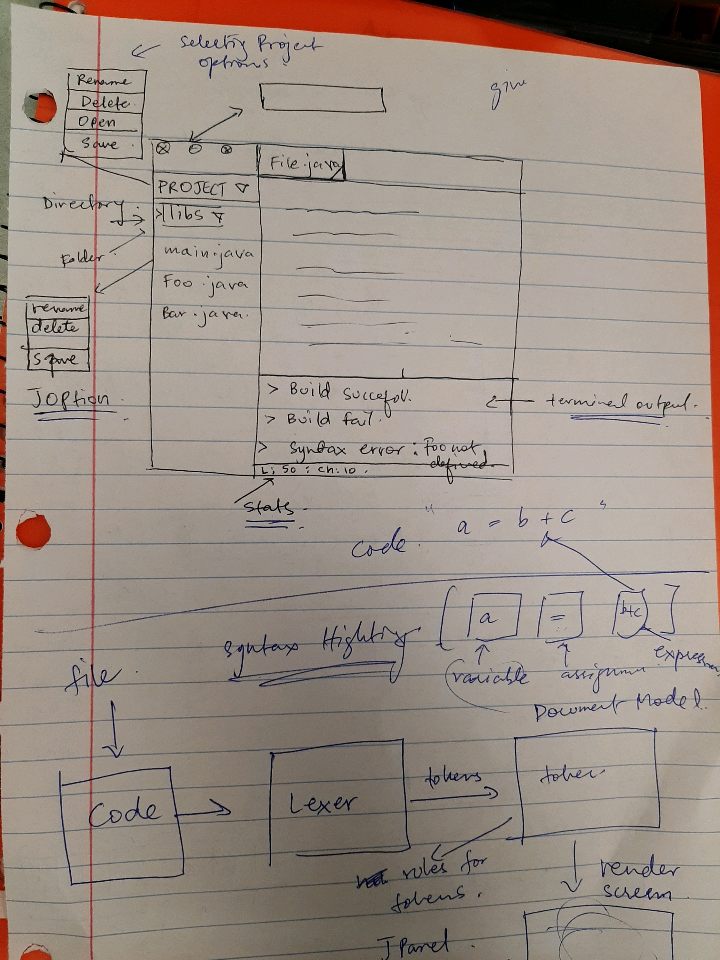 Selectig Project
options.
Rename
Delete.
Open
Save.
File.java
PROJECT
Directory.
> libs
Folder.
main.java
Foo.java
Bar.java.
rename
delete
save
JOption.
> Build Succefol.
> Build fail.
> Syntax error: Foo not
defined.
terminal output.
L: 50 : ch: 10.
Stats.
Code. " a = b + c "
Syntax Highting. [ a = b+c ]
variable assignm expression
Document Model.
file.
Code
Lexer
tokens
token.
rules for
tokens.
render
screen.
JPanel.